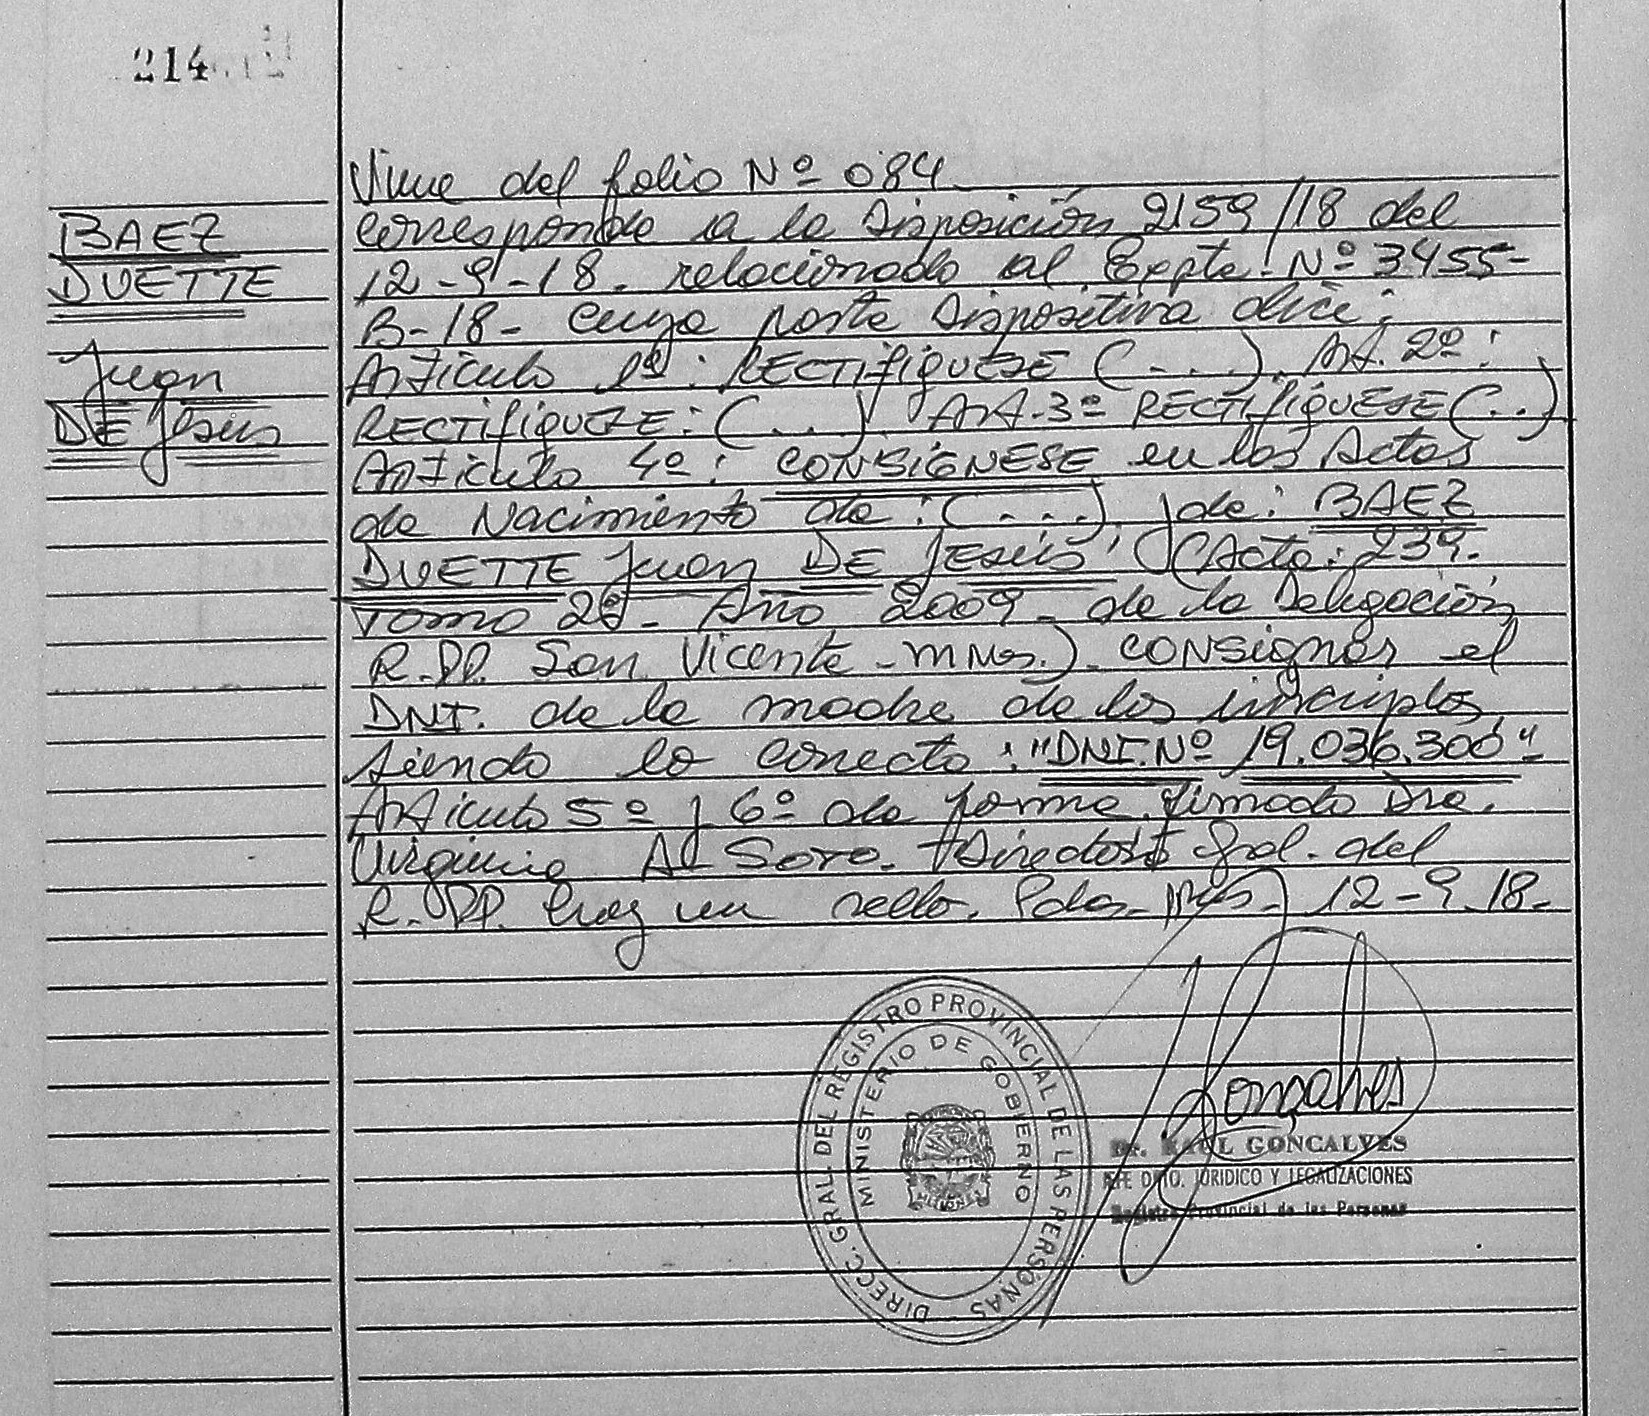 214
BAEZ
DUETTE
Juan
DE Jesús
Viene del folio Nº 084_
corresponde a la Disposición 2159/18 del
12-9-18. relacionado al Expte. Nº 3455-
B-18- cuya parte Dispositiva dice:
Artículo 1º: RECTIFIQUESE (...). Art. 2º:
RECTIFIQUESE: (...) Art. 3º RECTIFIQUESE (...)
Artículo 4º: CONSIGNESE en las Actas
de Nacimiento de: (...), y de: BAEZ
DUETTE Juan DE Jesús, (Acta: 239.
Tomo 2º- Año 2009- de la Delegación
R.PP. San Vicente - Mnes.). consignar el
DNI. de la madre de los inscriptos
siendo lo correcto: "DNI. Nº 19.036.300"-
Artículo 5º y 6º de forma. firmado Dra.
Virginia A Soto. Directora Gral. del
R.PP. hay un sello. Pdas. Mnes. 12-9-18.
DIRECC. GRAL. DEL REGISTRO PROVINCIAL DE LAS PERSONAS
MINISTERIO DE GOBIERNO
MISIONES
Gonçalves
Dr. RAUL GONÇALVES
JEFE DPTO. JURIDICO Y LEGALIZACIONES
Registro Provincial de las Personas